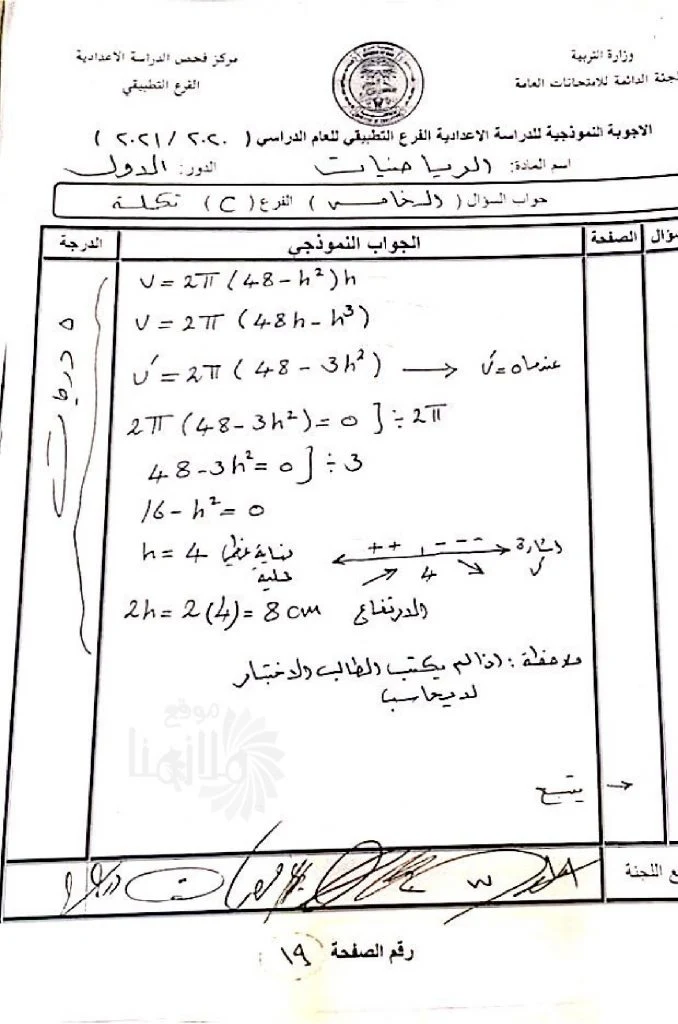 وزارة التربية
لجنة الدائمة للامتحانات العامة
مركز فحص الدراسة الاعدادية
الفرع التطبيقي
الاجوبة النموذجية للدراسة الاعدادية الفرع التطبيقي للعام الدراسي ( ٢٠٢٠ / ٢٠٢١ )
اسم المادة: الرياضيات الدور: الاول
جواب السؤال ( الخامس ) الفرع ( C ) تكملة
ؤال الصفحة الجواب النموذجي الدرجة
V = 2π (48 - h²) h
V = 2π (48h - h³)
V′ = 2π (48 - 3h²) → V′ = 0 عندما
2π (48 - 3h²) = 0 ] ÷ 2π
48 - 3h² = 0 ] ÷ 3
16 - h² = 0
h = 4 نهاية عظمى محلية
++ --- اشارة V′
4
2h = 2(4) = 8 cm الارتفاع
٥ درجات
ملاحظة : اذا لم يكتب الطالب الاختبار
لا يحاسب
موقع
ملازمنا
يتبع ←
ع اللجنة
رقم الصفحة ( ١٩ )